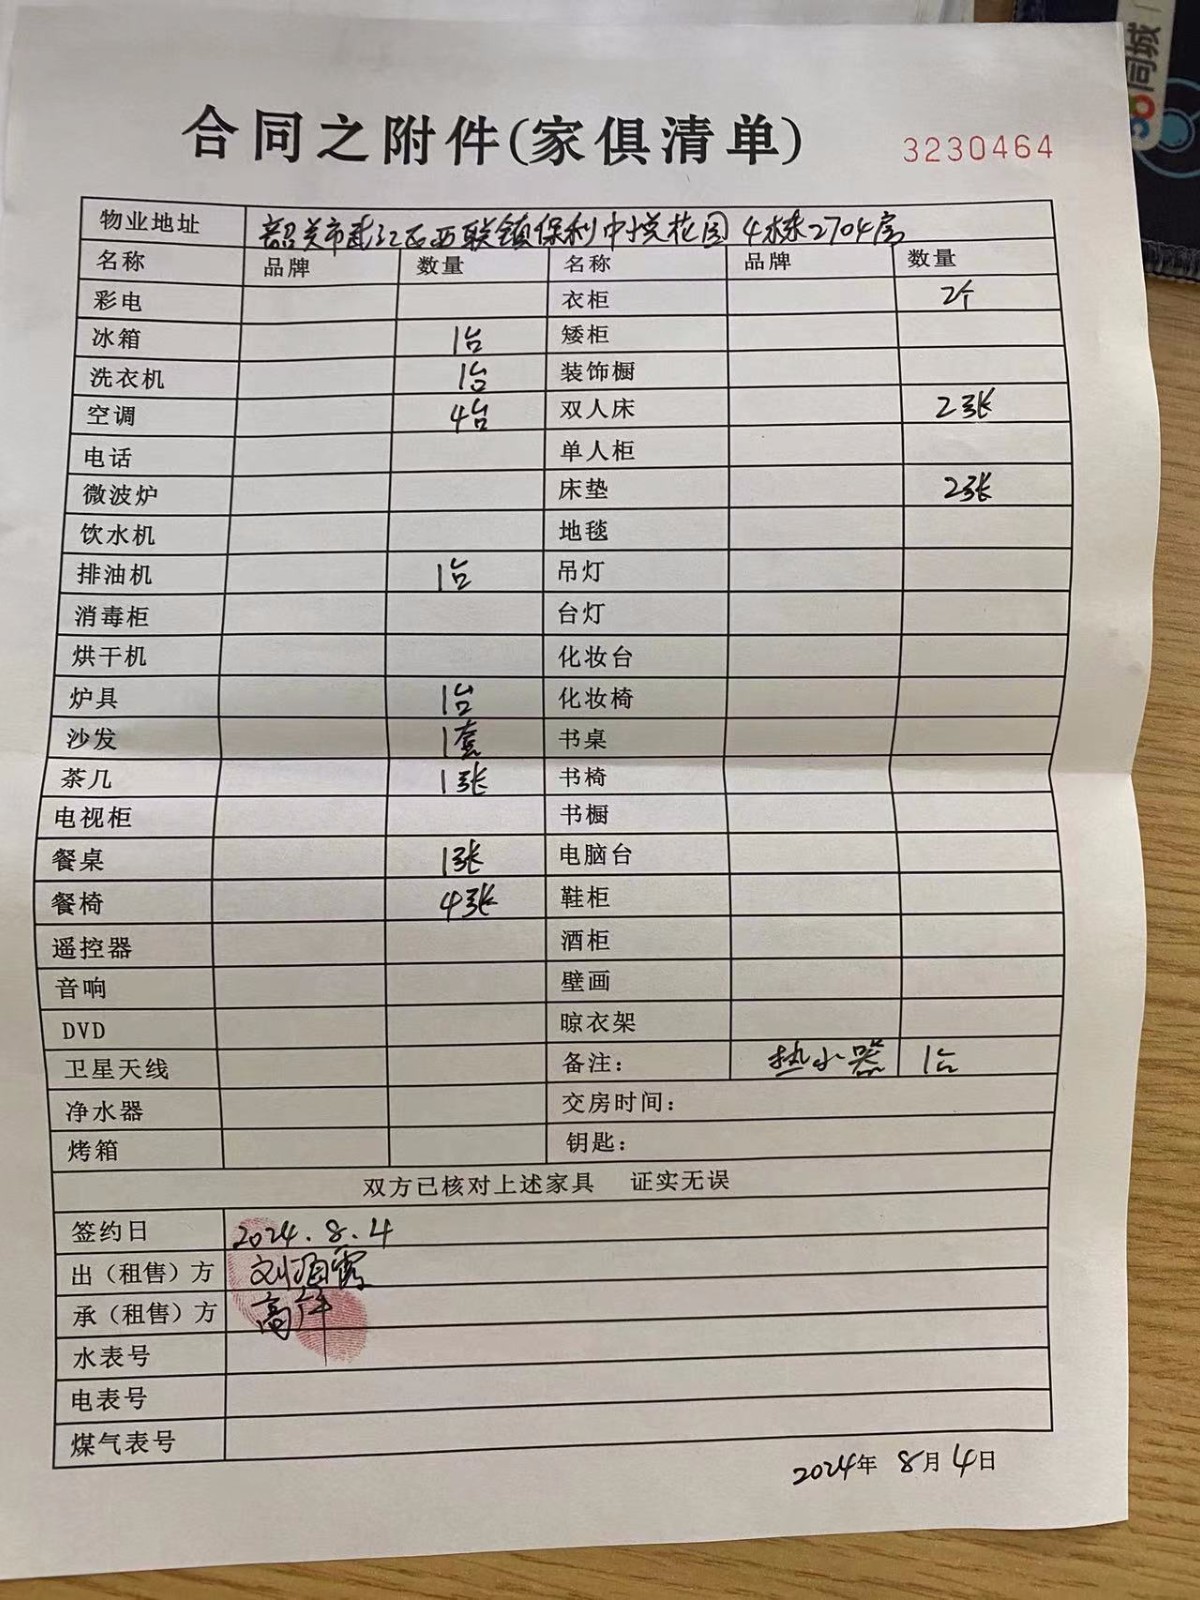 58同城
合同之附件(家俱清单)
3230464
物业地址 韶关市武江区西联镇保利中悦花园4栋2704房
名称 品牌 数量 名称 品牌 数量
彩电 衣柜 2个
冰箱 1台 矮柜
洗衣机 1台 装饰橱
空调 4台 双人床 2张
电话 单人柜
微波炉 床垫 2张
饮水机 地毯
排油机 1台 吊灯
消毒柜 台灯
烘干机 化妆台
炉具 1台 化妆椅
沙发 1套 书桌
茶几 1张 书椅
电视柜 书橱
餐桌 1张 电脑台
餐椅 4张 鞋柜
遥控器 酒柜
音响 壁画
DVD 晾衣架
卫星天线 备注： 热水器 1台
净水器 交房时间：
烤箱 钥匙：
双方已核对上述家具 证实无误
签约日 2024.8.4
出（租售）方 刘
承（租售）方 高
水表号
电表号
煤气表号
2024年 8月4日